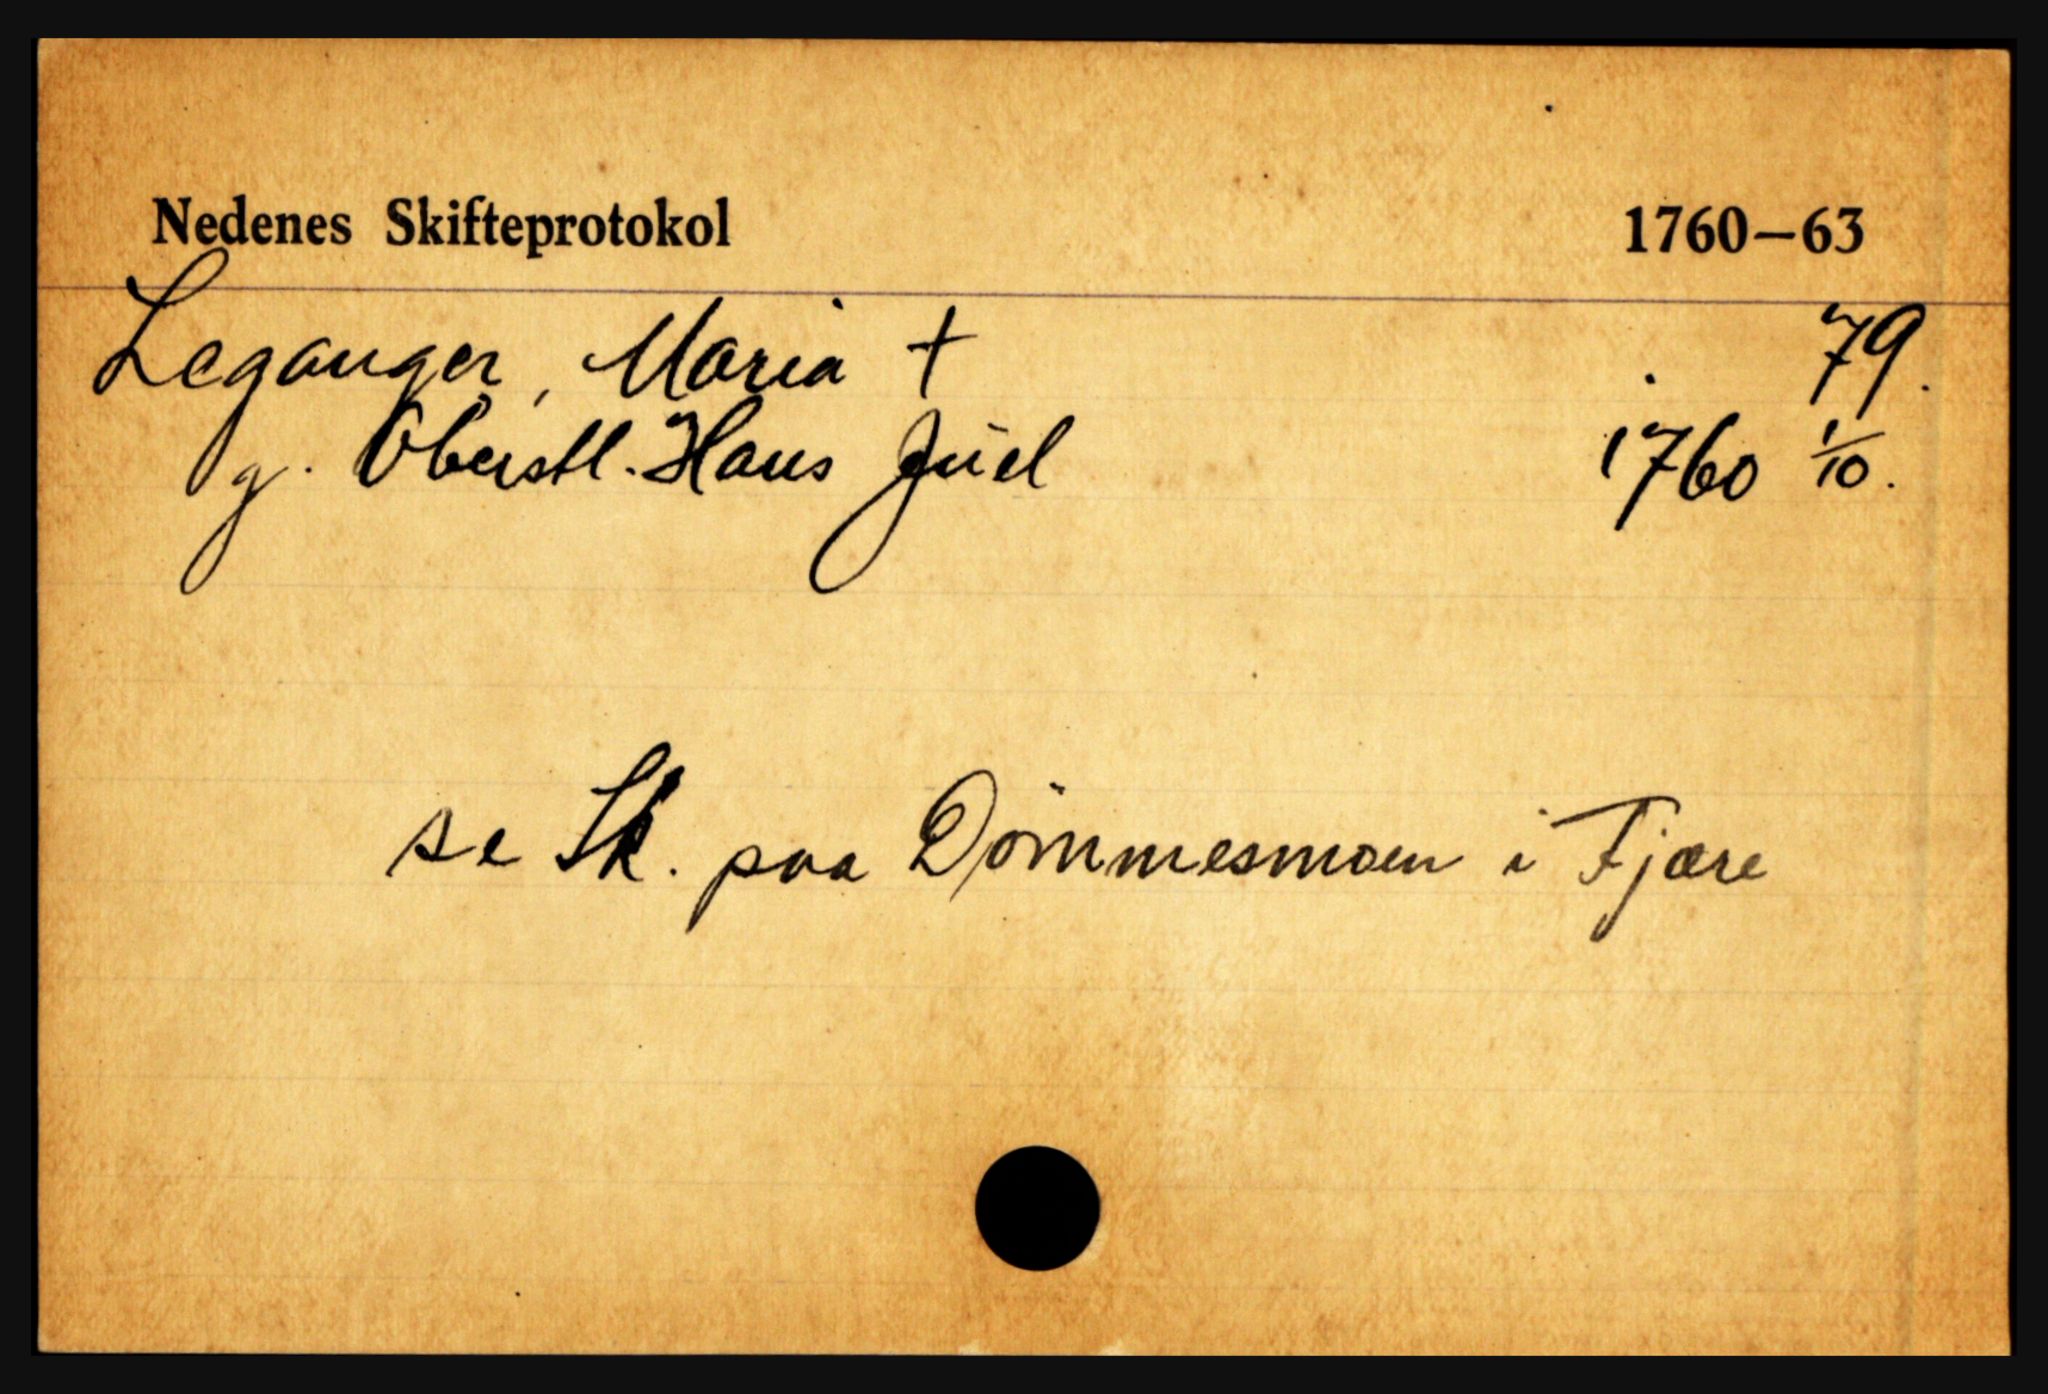 Nedenes Skifteprotokol 1760—63
Leganger, Maria † 79.
g. Oberstl. Hans Juel 1760 1/10.
se Sk. paa Dömmesmoen i Fjære